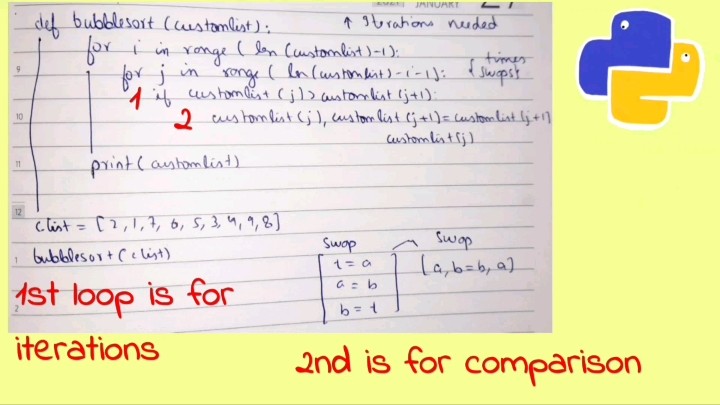 2021 JANUARY 27
def bubblesort (customlist):
↑ Iterations needed
for i in range ( len (customlist)-1):
for j in range ( len (customlist) -i-1): { times swaps}
1 if customlist (j) > customlist (j+1):
2 customlist (j), customlist (j+1) = customlist (j+1)
customlist (j)
print ( customlist)
clist = [2, 1, 7, 6, 5, 3, 4, 9, 8]
bubblesort (clist)
swap
t = a
a = b
b = t
swap
[a, b = b, a]
9
10
11
12
1
2
1st loop is for
iterations
2nd is for comparison